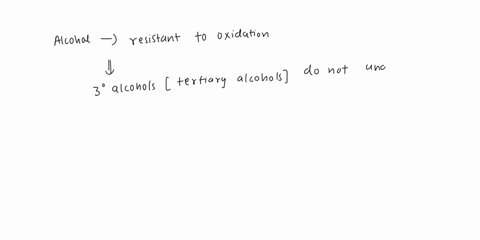 Alcohol —) resistant to oxidation
⇓
3° alcohols [ tertiary alcohols] do not und